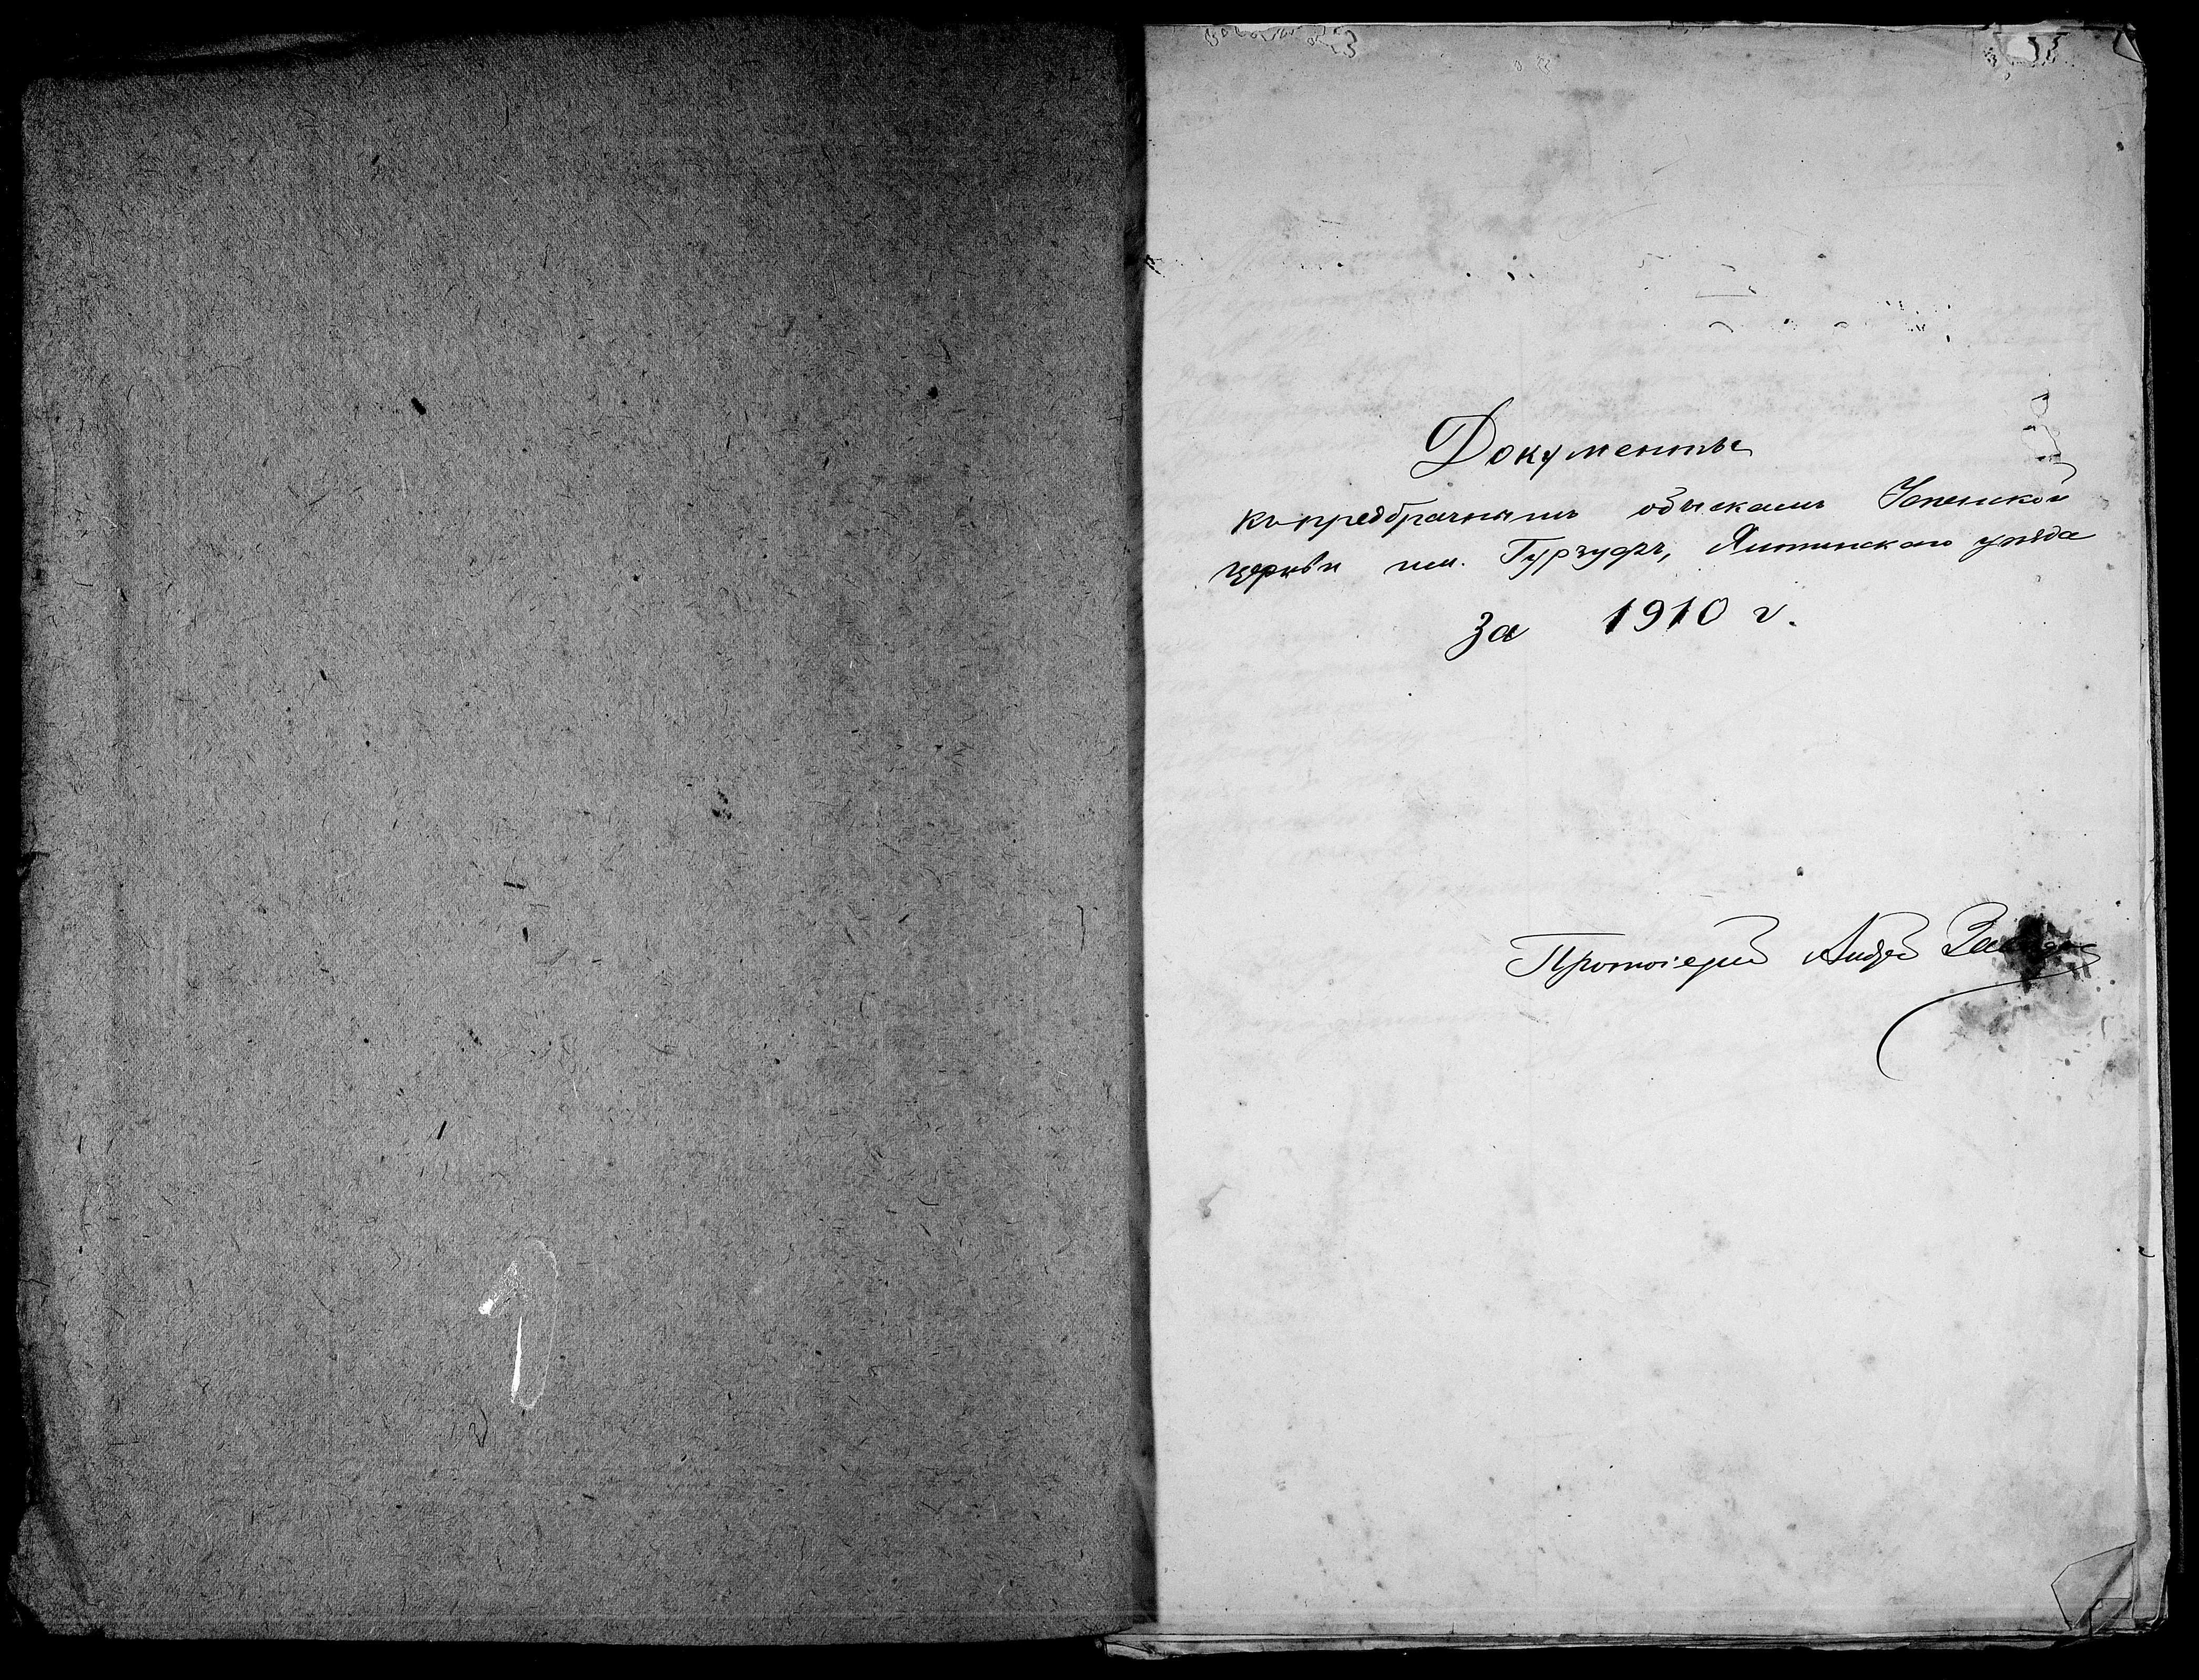 Документы
къ предбрачнымъ обыскамъ Успенской
церкви им. Гурзуфъ, Ялтинскаго уѣзда
за 1910 г.
Протоіерей Андрей